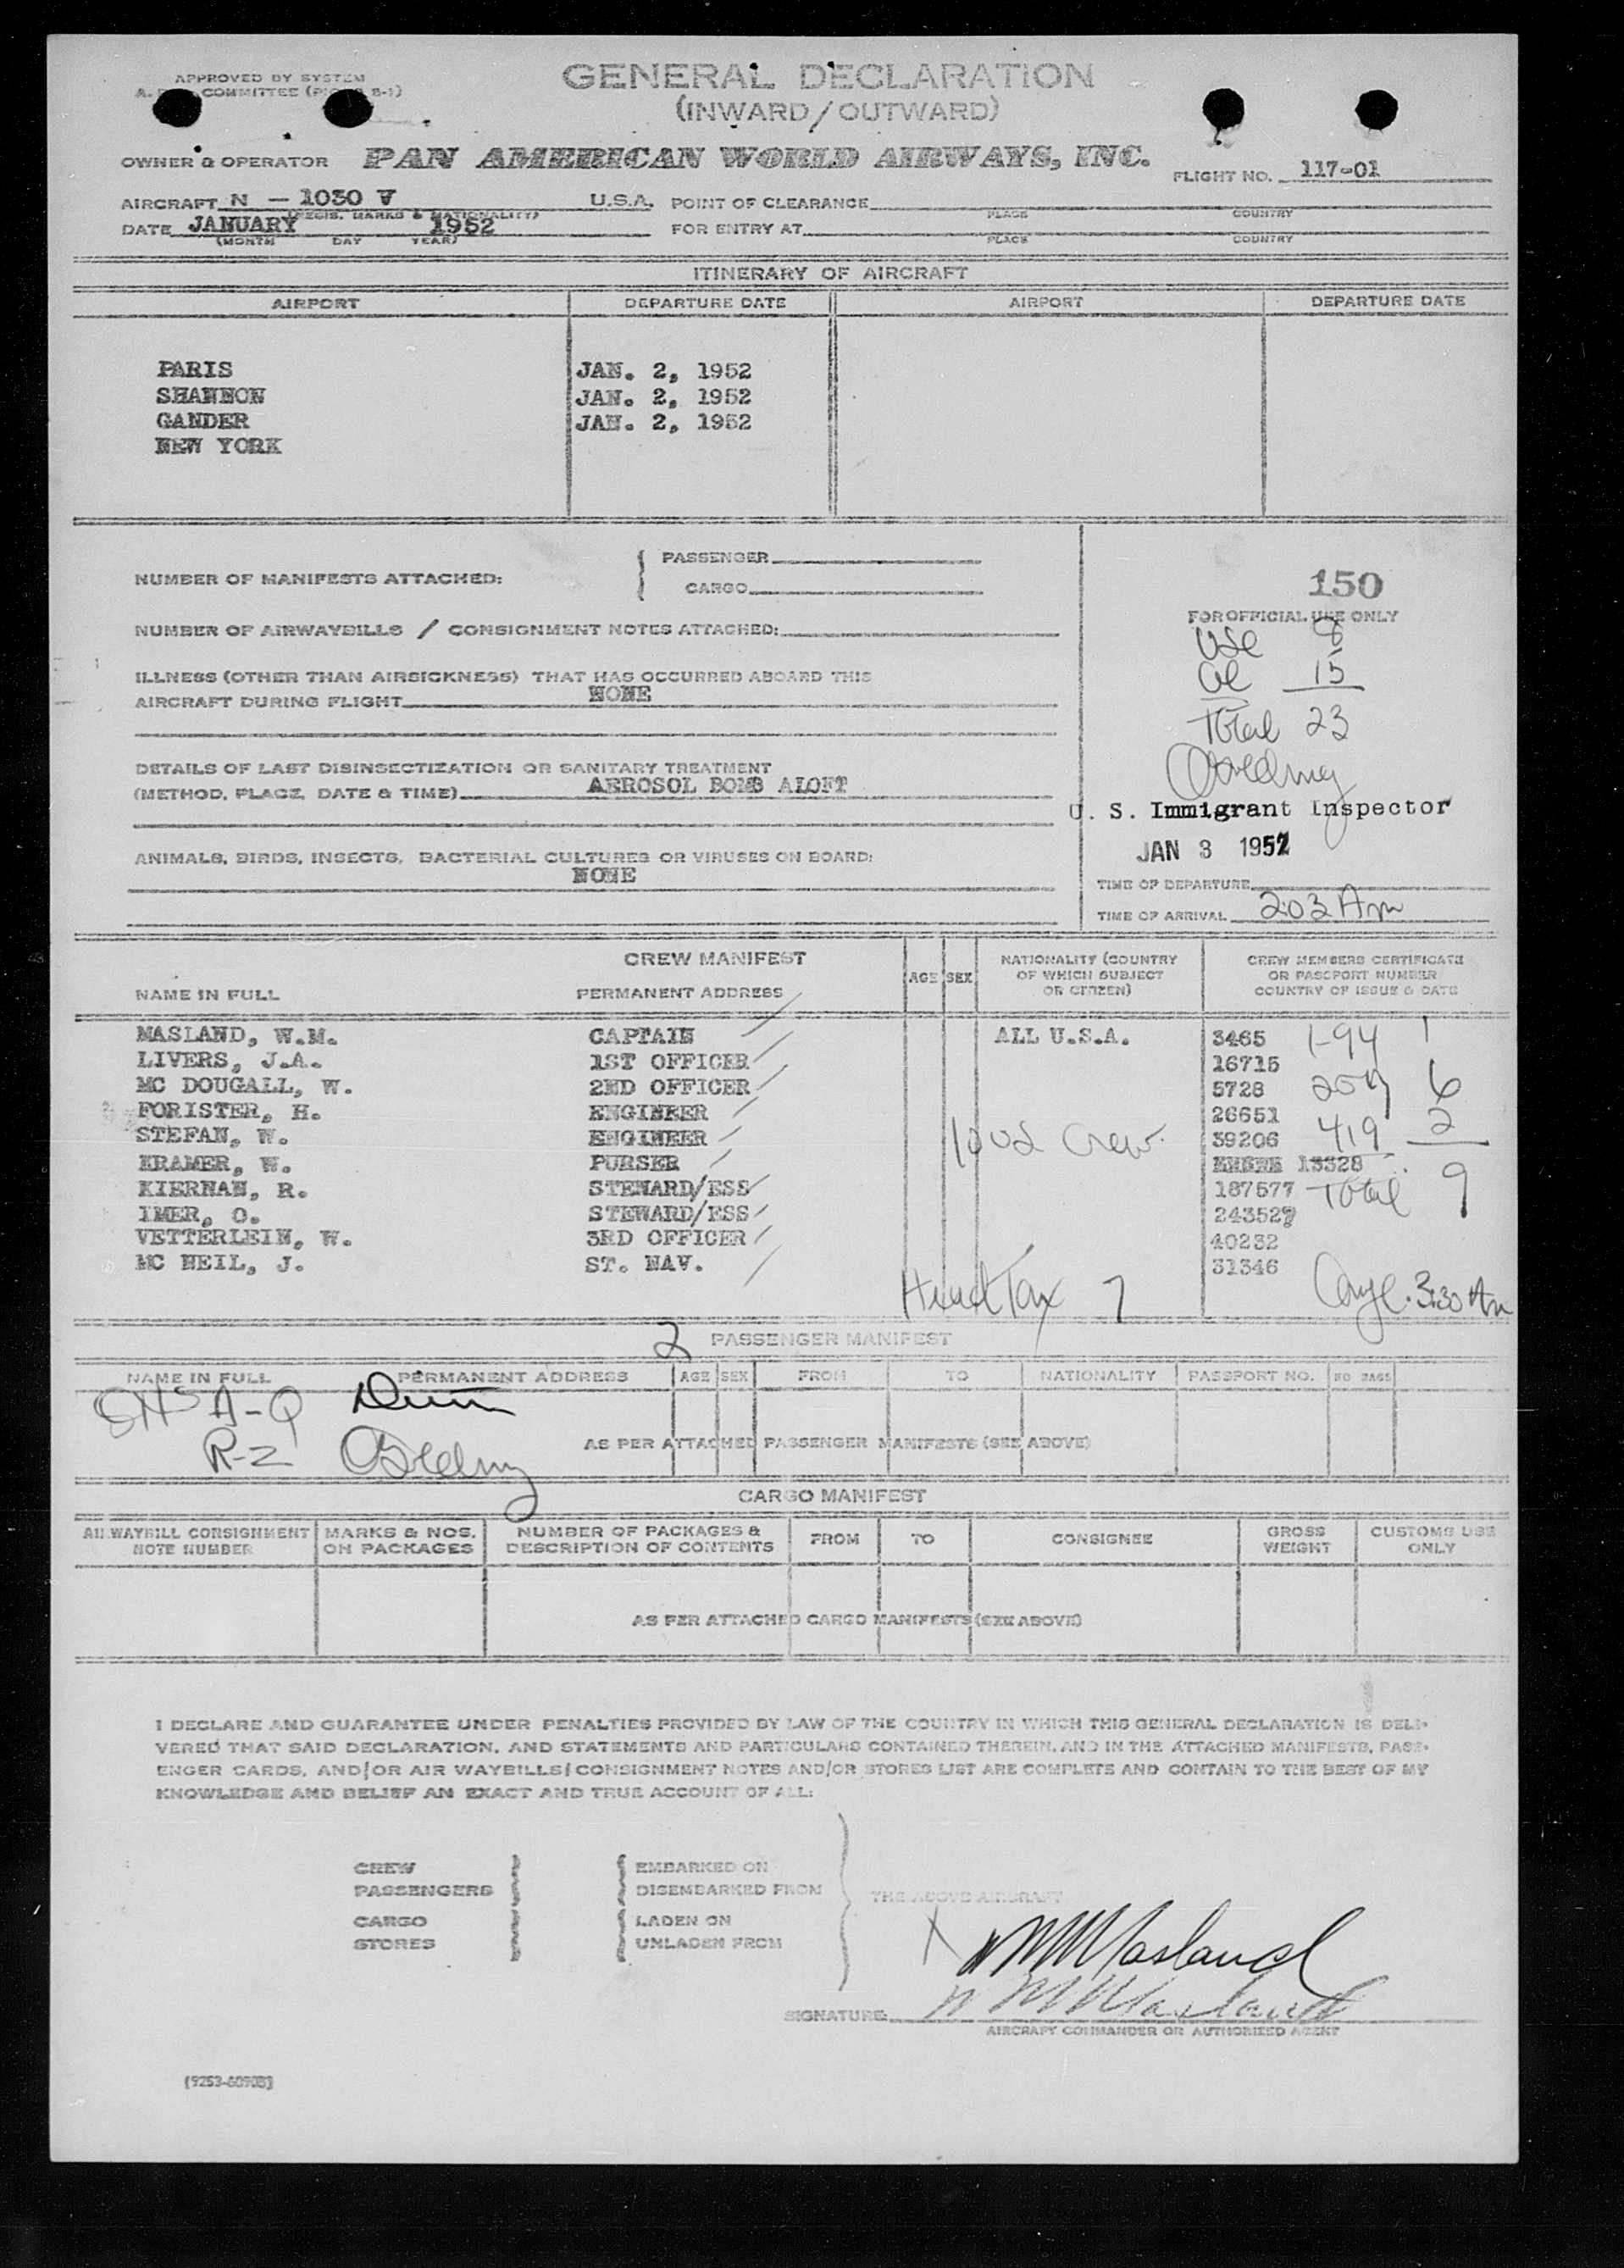 APPROVED BY SYSTEM
COMMITTEE
GENERAL DECLARATION
(INWARD/OUTWARD)
OWNER & OPERATOR PAN AMERICAN WORLD AIRWAYS, INC.
FLIGHT NO. 117-01
AIRCRAFT N - 1030 V U.S.A. POINT OF CLEARANCE
(REGIS. MARKS & NATIONALITY) PLACE COUNTRY
DATE JANUARY 1952 FOR ENTRY AT
(MONTH DAY YEAR) PLACE COUNTRY
ITINERARY OF AIRCRAFT
AIRPORT DEPARTURE DATE AIRPORT DEPARTURE DATE
PARIS JAN. 2, 1952
SHANNON JAN. 2, 1952
GANDER JAN. 2, 1952
NEW YORK
NUMBER OF MANIFESTS ATTACHED: { PASSENGER
CARGO
NUMBER OF AIRWAYBILLS / CONSIGNMENT NOTES ATTACHED:
ILLNESS (OTHER THAN AIRSICKNESS) THAT HAS OCCURRED ABOARD THIS
AIRCRAFT DURING FLIGHT NONE
DETAILS OF LAST DISINSECTIZATION OR SANITARY TREATMENT
(METHOD, PLACE, DATE & TIME) AEROSOL BOMB ALOFT
ANIMALS, BIRDS, INSECTS, BACTERIAL CULTURES OR VIRUSES ON BOARD:
NONE
150
FOR OFFICIAL USE ONLY
USC 8
15
Total 23
U. S. Immigrant Inspector
JAN 3 1952
TIME OF DEPARTURE
TIME OF ARRIVAL 203 Am
CREW MANIFEST
NAME IN FULL PERMANENT ADDRESS AGE SEX NATIONALITY (COUNTRY OF WHICH SUBJECT OR CITIZEN) CREW MEMBERS CERTIFICATE OR PASSPORT NUMBER COUNTRY OF ISSUE & DATE
MASLAND, W.M. CAPTAIN ALL U.S.A. 3465 1-94 1
LIVERS, J.A. 1ST OFFICER 16715
MC DOUGALL, W. 2ND OFFICER 5728 6
FORISTER, H. ENGINEER 26651
STEFAN, W. ENGINEER Crew 39206 419 2
KRAMER, W. PURSER 13328
KIERNAN, R. STEWARD/ESS 187577 Total 9
IMER, O. STEWARD/ESS 243527
VETTERLEIN, W. 3RD OFFICER 40232
MC NEIL, J. ST. NAV. 31346
Head Tax 7 3:30 Am
2 PASSENGER MANIFEST
NAME IN FULL PERMANENT ADDRESS AGE SEX FROM TO NATIONALITY PASSPORT NO. NO BAGS
A-Q
R-Z
AS PER ATTACHED PASSENGER MANIFESTS (SEE ABOVE)
CARGO MANIFEST
AIRWAYBILL CONSIGNMENT NOTE NUMBER MARKS & NOS. ON PACKAGES NUMBER OF PACKAGES & DESCRIPTION OF CONTENTS FROM TO CONSIGNEE GROSS WEIGHT CUSTOMS USE ONLY
AS PER ATTACHED CARGO MANIFESTS (SEE ABOVE)
I DECLARE AND GUARANTEE UNDER PENALTIES PROVIDED BY LAW OF THE COUNTRY IN WHICH THIS GENERAL DECLARATION IS DELI-
VERED THAT SAID DECLARATION, AND STATEMENTS AND PARTICULARS CONTAINED THEREIN, AND IN THE ATTACHED MANIFESTS, PASS-
ENGER CARDS, AND/OR AIR WAYBILLS/CONSIGNMENT NOTES AND/OR STORES LIST ARE COMPLETE AND CONTAIN TO THE BEST OF MY
KNOWLEDGE AND BELIEF AN EXACT AND TRUE ACCOUNT OF ALL:
CREW EMBARKED ON
PASSENGERS DISEMBARKED FROM THE ABOVE AIRCRAFT
CARGO LADEN ON
STORES UNLADEN FROM
X WM Masland
SIGNATURE: WM Masland
AIRCRAFT COMMANDER OR AUTHORIZED AGENT